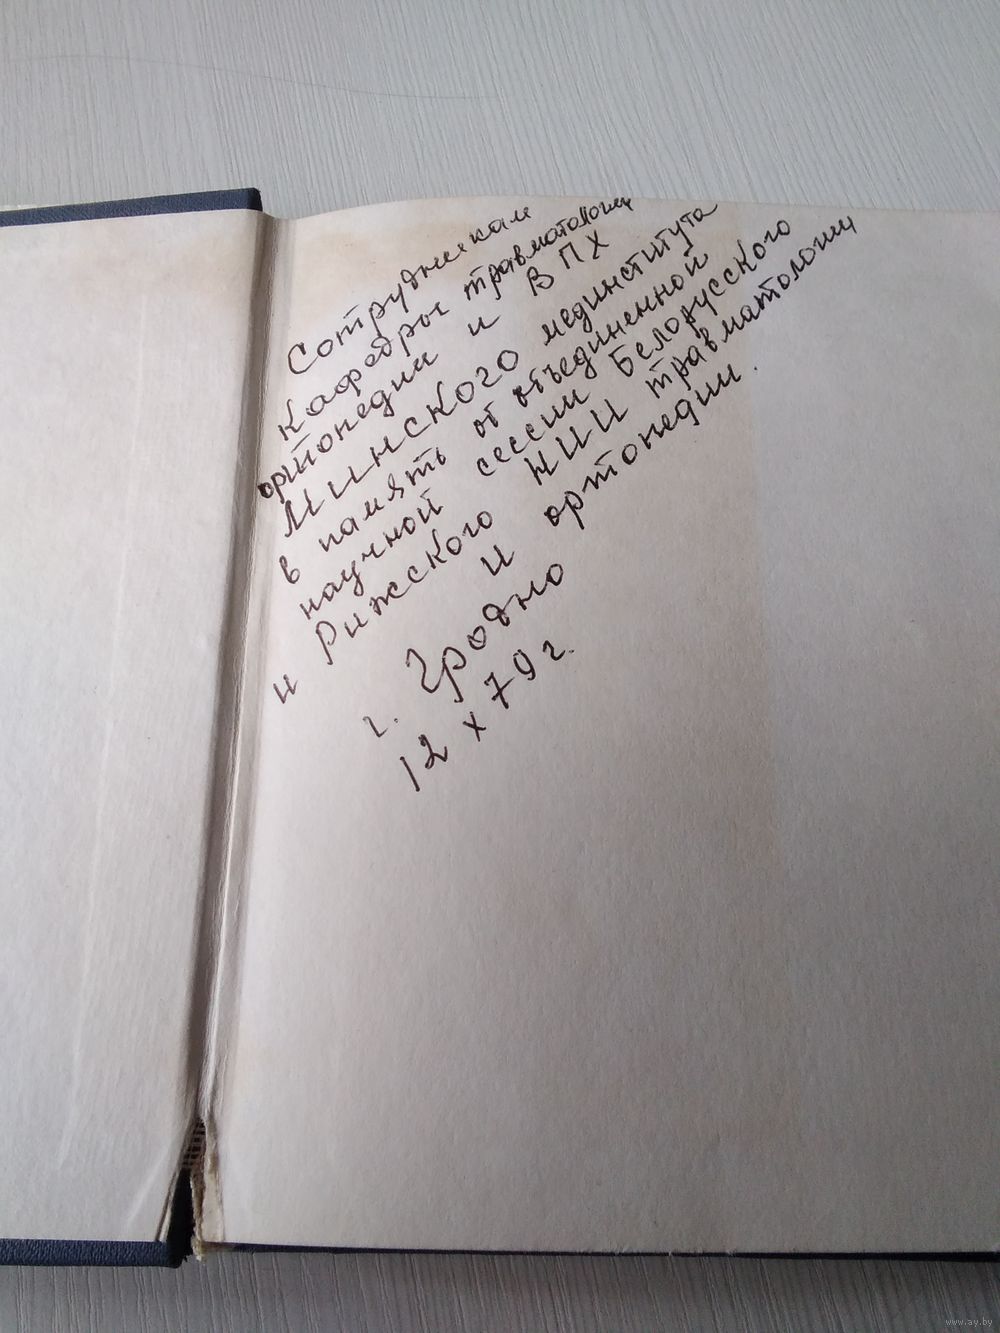 Сотрудникам
кафедры травматологии
ортопедии и ВПХ
Минского мединститута
в память от объединенной
научной сессии Белорусского
и Рижского НИИ травматологии
и ортопедии.
г. Гродно
12 X 79 г.
www.ay.by